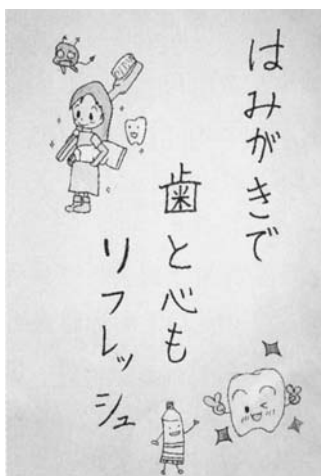 はみがきで
歯と心も
リフレッシュ